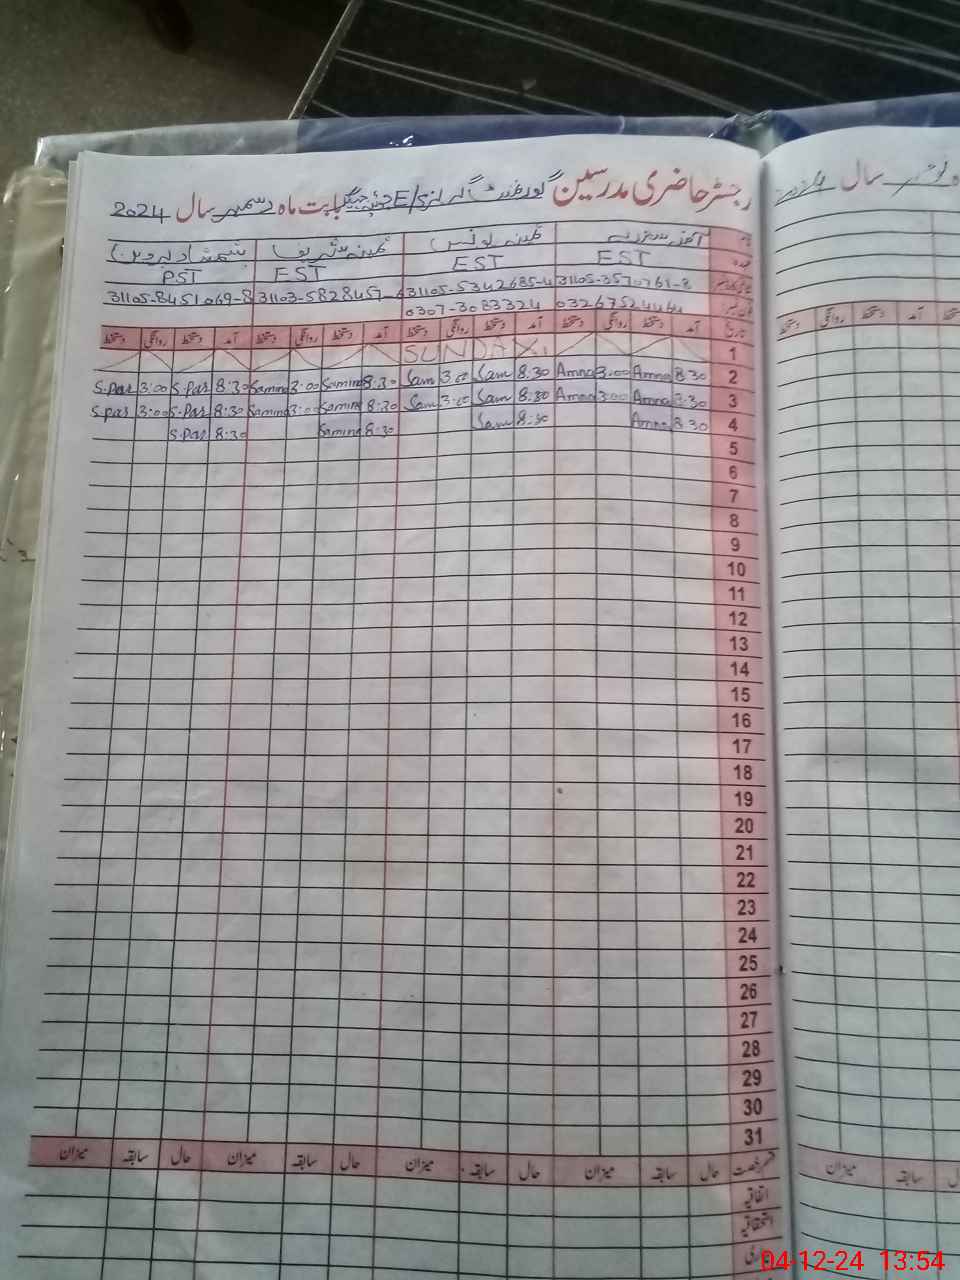 رجسٹر حاضری مدرسین گورنمنٹ گرلز بابت ماہ دسمبر سال 2024
سال
نام آمنہ ثمینہ یونس ثمینہ شمشاد پروین
عہدہ EST EST EST PST
31105-3570761-8 31105-5342685-4 31103-5828457- 31105-8451069-8
فون نمبر 03267524464 0307-3083324
تاریخ آمد دستخط روانگی دستخط آمد دستخط روانگی دستخط آمد دستخط روانگی دستخط آمد دستخط روانگی دستخط
آمد دستخط روانگی دستخط
1 SUNDAY
2 8:30 Amna 3:00 Amna 8:30 Sam 3:00 Sam 8:30 Samina 3:00 Samina 8:30 S.Par 3:00 S.Par
3 8:30 Amna 3:00 Amna 8:30 Sam 3:00 Sam 8:30 Samina 3:00 Samina 8:30 S.Par 3:00 S.Par
4 8:30 Amna 8:30 Sam 8:30 Samina 8:30 S.Par
5
6
7
8
9
10
11
12
13
14
15
16
17
18
19
20
21
22
23
24
25
26
27
28
29
30
31
قسم رخصت حال سابقہ میزان حال سابقہ میزان حال سابقہ میزان حال سابقہ میزان
سابقہ میزان
اتفاقیہ
استحقاقیہ
04-12-24 13:54